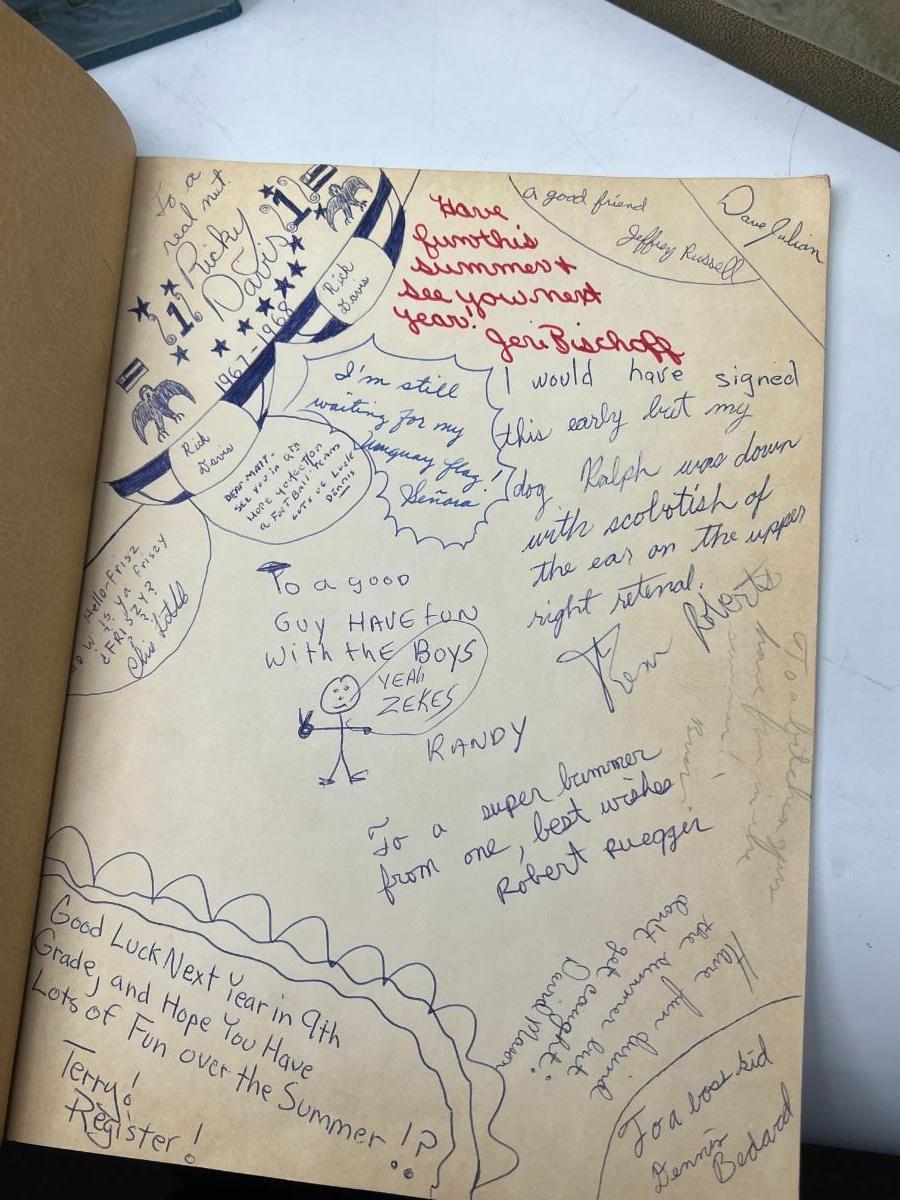 To a
real nut.
Ricky
Davis
1
1
1967-1968
Rick
Davis
Rick
Davis
Have
fun this
summer +
see you next
year!
Jeri Bischoff
a good friend
Jeffrey Russell
Dave Julian
I'm still
waiting for my
flag!
Señora
DEAR MATT-
See you in
Hope you
a FootBall Team
Lots of Luck
Dennis
Hello-Frisz
is ya friszy
¿FRISZY?
? ? ?
Chis
I would have signed
this early but my
dog Ralph was down
with scobotish of
the ear on the upper
right retenal.
To a good
Guy HAVE fUN
With the BOYS
YEAh
ZEKES
RANDY
To a
have fun in the
summer!
To a super bummer
from one, best wishes
Robert Ruegger
Have fun durind
the summer but
don't get caught.
David Mason
Good Luck Next Year in 9th
Grade, and Hope You Have
Lots of Fun over the Summer!?
Terry!
Register!
To a boss kid
Dennis
Bedard